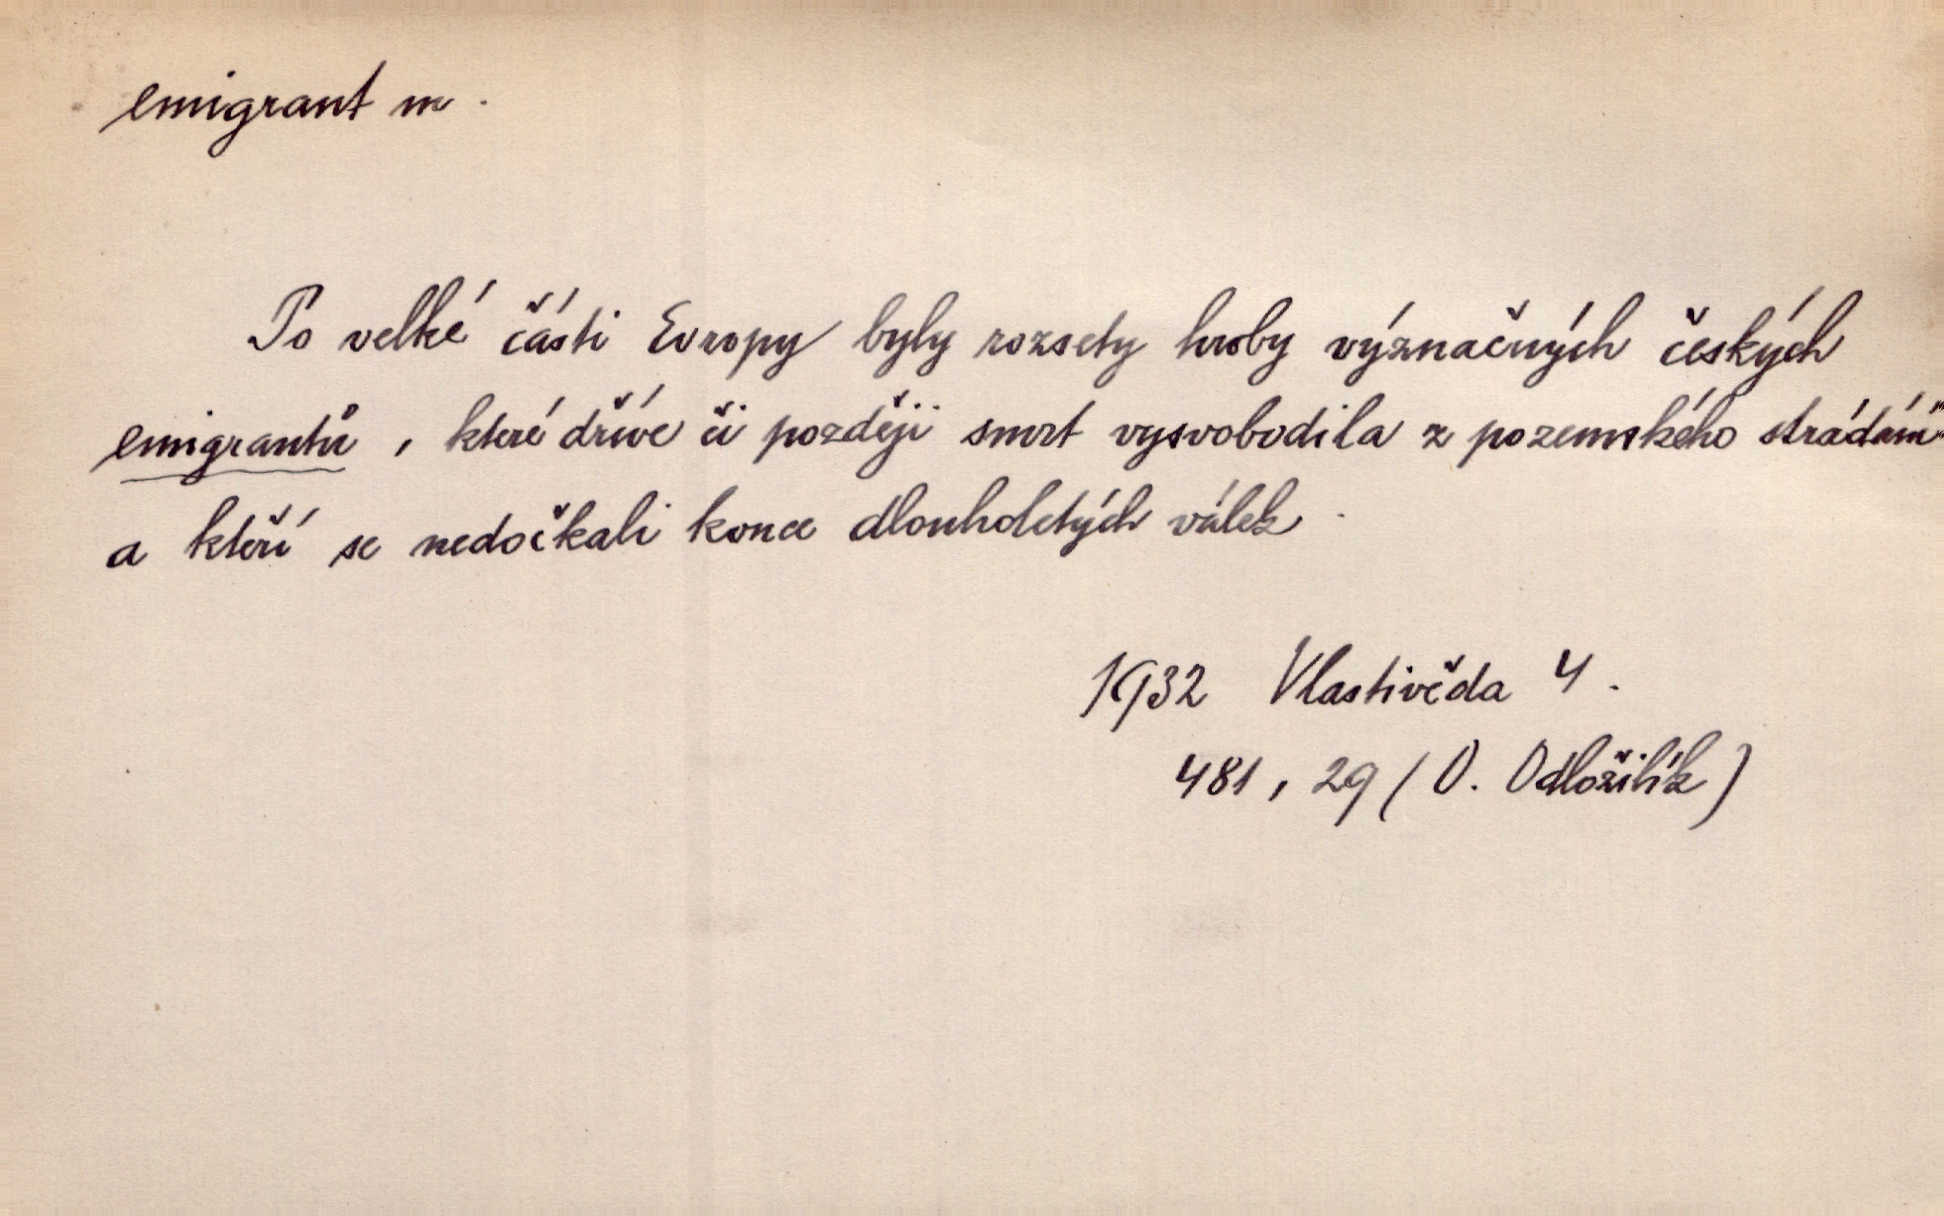 emigrant m.
Po velké části Evropy byly rozsety hroby význačných českých
emigrantů, které dříve či později smrt vysvobodila z pozemského strádání
a kteří se nedočkali konce dlouholetých válek.
1932 Vlastivěda 4.
481, 29 (O. Odložilík)